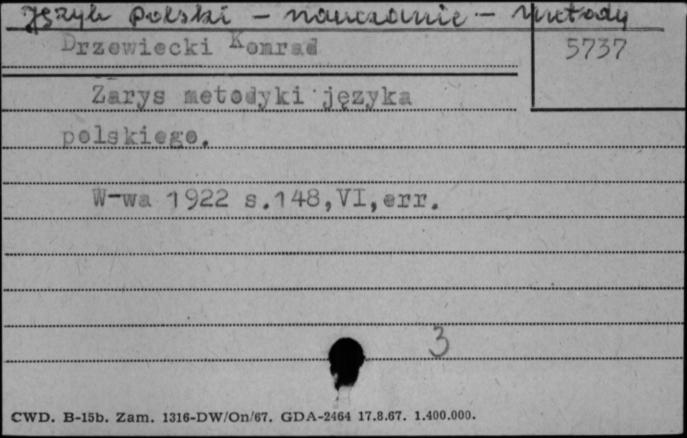 Język polski - nauczanie - metody
Drzewiecki Konrad
5737
Zarys metodyki języka
polskiego.
W-wa 1922 s.148,VI,err.
3
CWD. B-15b. Zam. 1316-DW/On/67. GDA-2464 17.8.67. 1.400.000.